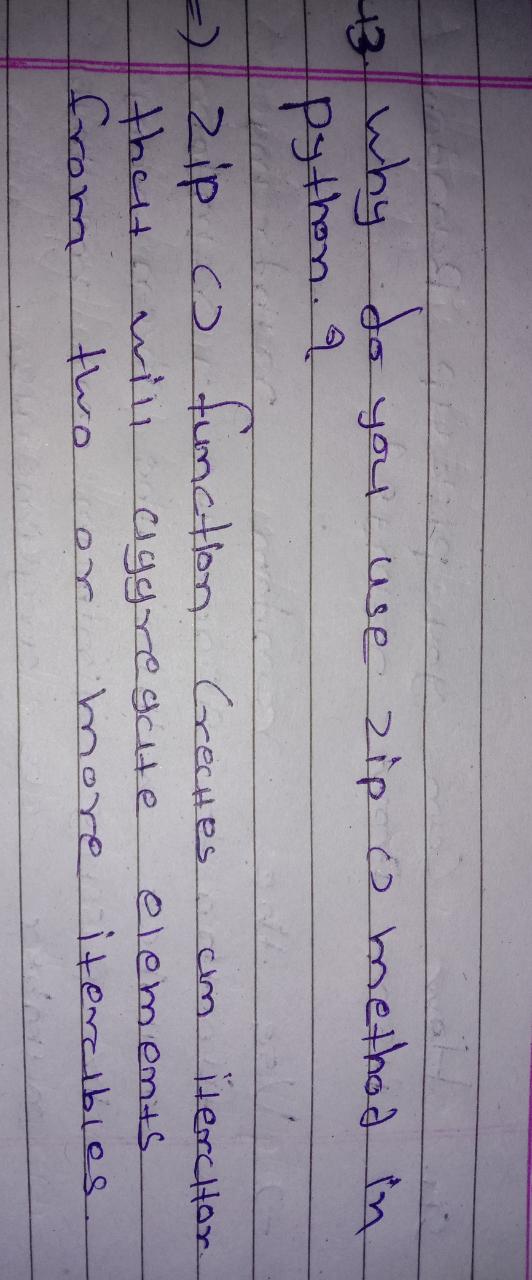 43. Why do you use zip () method in
python. ?
=) zip () function Creates an iterator
that will aggregate elements
from two or more iterables.